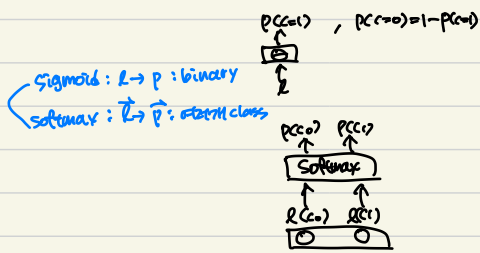 p(c=1) , p(c=0)=1-p(c=1)
l
sigmoid : l → p : binary
softmax : l → p : class
p(c0) p(c1)
Softmax
l(c0) l(c1)